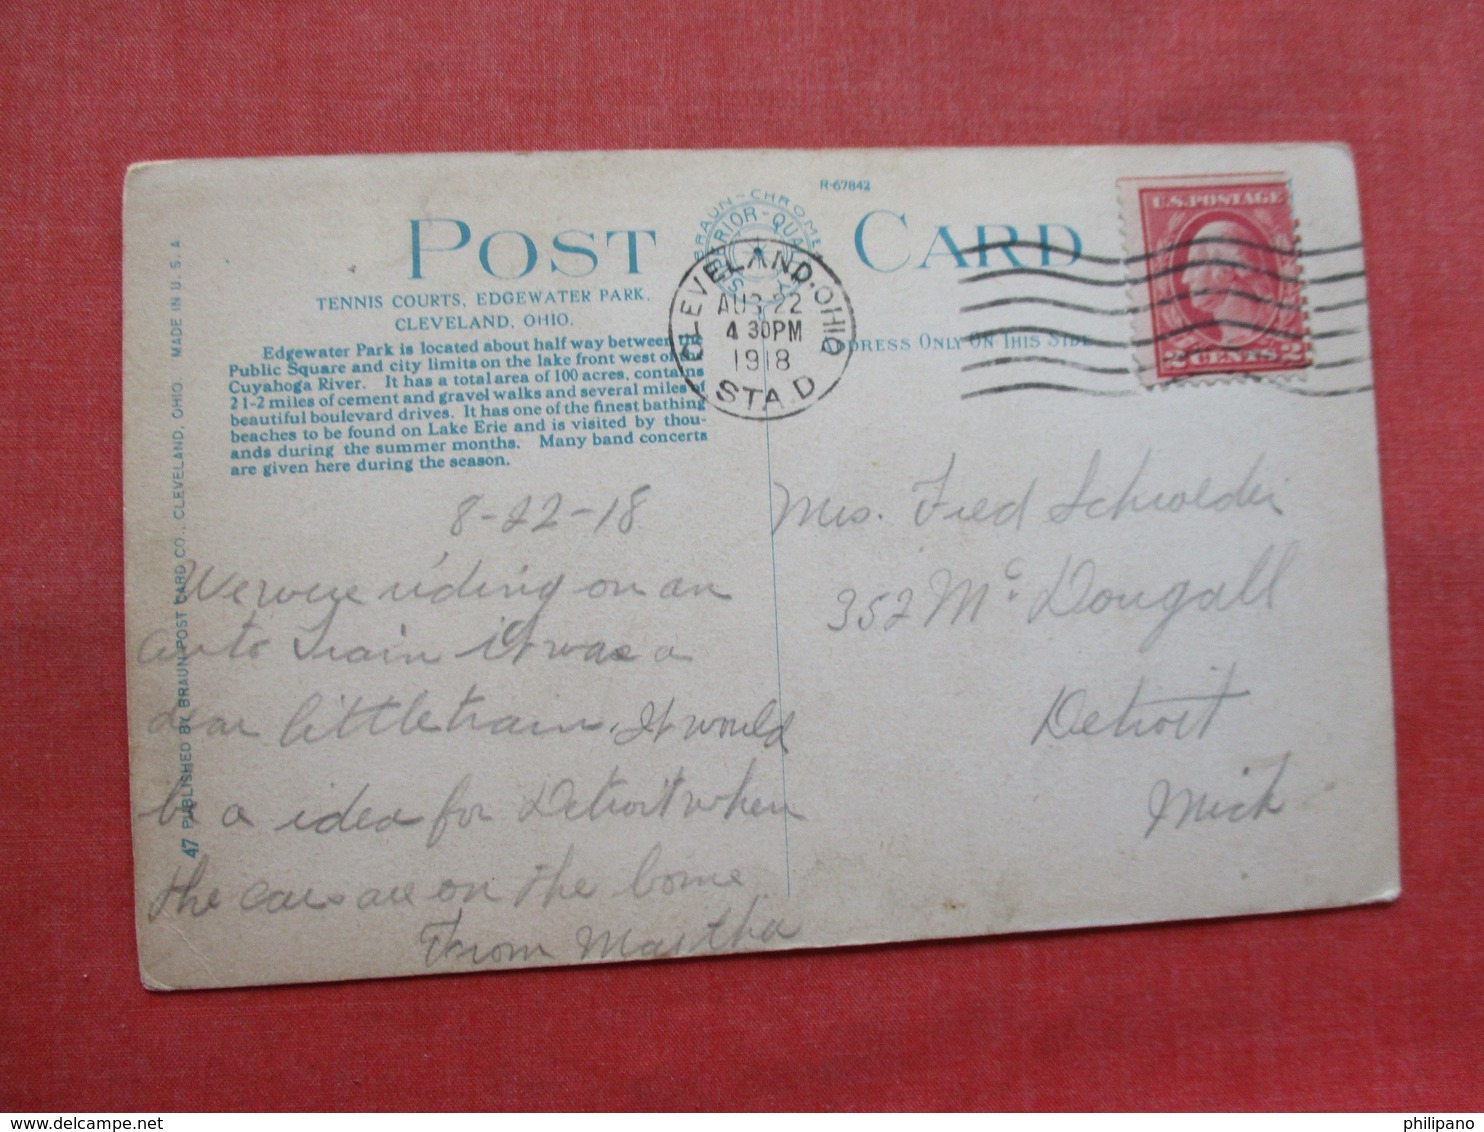 R-67842
POST CARD
BRAUN-CHROME
SUPERIOR-QUALITY
U.S. POSTAGE
2 CENTS 2
CLEVELAND, OHIO
AUG 22
4 30PM
1918
STA. D
TENNIS COURTS, EDGEWATER PARK,
CLEVELAND, OHIO.
Edgewater Park is located about half way between the
Public Square and city limits on the lake front west of
Cuyahoga River. It has a total area of 100 acres, contains
2 1-2 miles of cement and gravel walks and several miles of
beautiful boulevard drives. It has one of the finest bathing
beaches to be found on Lake Erie and is visited by thou-
ands during the summer months. Many band concerts
are given here during the season.
DRESS ONLY ON THIS SIDE
47 PUBLISHED BY BRAUN POST CARD CO., CLEVELAND, OHIO. MADE IN U.S.A
8-22-18
We were riding on an
auto train it was a
dear little train. It would
be a idea for Detroit when
the cars are on the bome
From Martha
Mrs. Fred Schroeder
352 McDougall
Detroit
Mich
philipano
delcampe.net